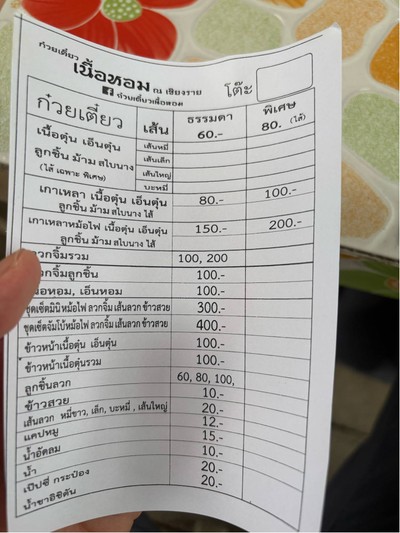 ก๋วยเตี๋ยว
เนื้อหอม ณ เชียงราย
ก๋วยเตี๋ยวเนื้อหอม
โต๊ะ
ก๋วยเตี๋ยว เส้น ธรรมดา 60.- พิเศษ 80. (ไส้)
เนื้อตุ๋น เอ็นตุ๋น
ลูกชิ้น ม้าม สไบนาง
(ไส้ เฉพาะ พิเศษ)
เส้นหมี่
เส้นเล็ก
เส้นใหญ่
บะหมี่
เกาเหลา เนื้อตุ๋น เอ็นตุ๋น 80.- 100.-
ลูกชิ้น ม้าม สไบนาง ไส้
เกาเหลาหม้อไฟ เนื้อตุ๋น เอ็นตุ๋น 150.- 200.-
ลูกชิ้น ม้าม สไบนาง ไส้
ลวกจิ้มรวม 100, 200
ลวกจิ้มลูกชิ้น 100.-
เนื้อหอม, เอ็นหอม 100.-
ชุดเซ็ตมินิหม้อไฟ ลวกจิ้ม เส้นลวก ข้าวสวย 300.-
ชุดเซ็ตจัมโบ้หม้อไฟ ลวกจิ้ม เส้นลวก ข้าวสวย 400.-
ข้าวหน้าเนื้อตุ๋น เอ็นตุ๋น 100.-
ข้าวหน้าเนื้อตุ๋นรวม 100.-
ลูกชิ้นลวก 60, 80, 100,
ข้าวสวย 10.-
เส้นลวก หมี่ขาว, เล็ก, บะหมี่ , เส้นใหญ่ 20.-
แคปหมู 12.-
น้ำอัดลม 15.-
น้ำ 10.-
เป๊ปซี่ กระป๋อง 20.-
น้ำชาอิชิตัน 20.-